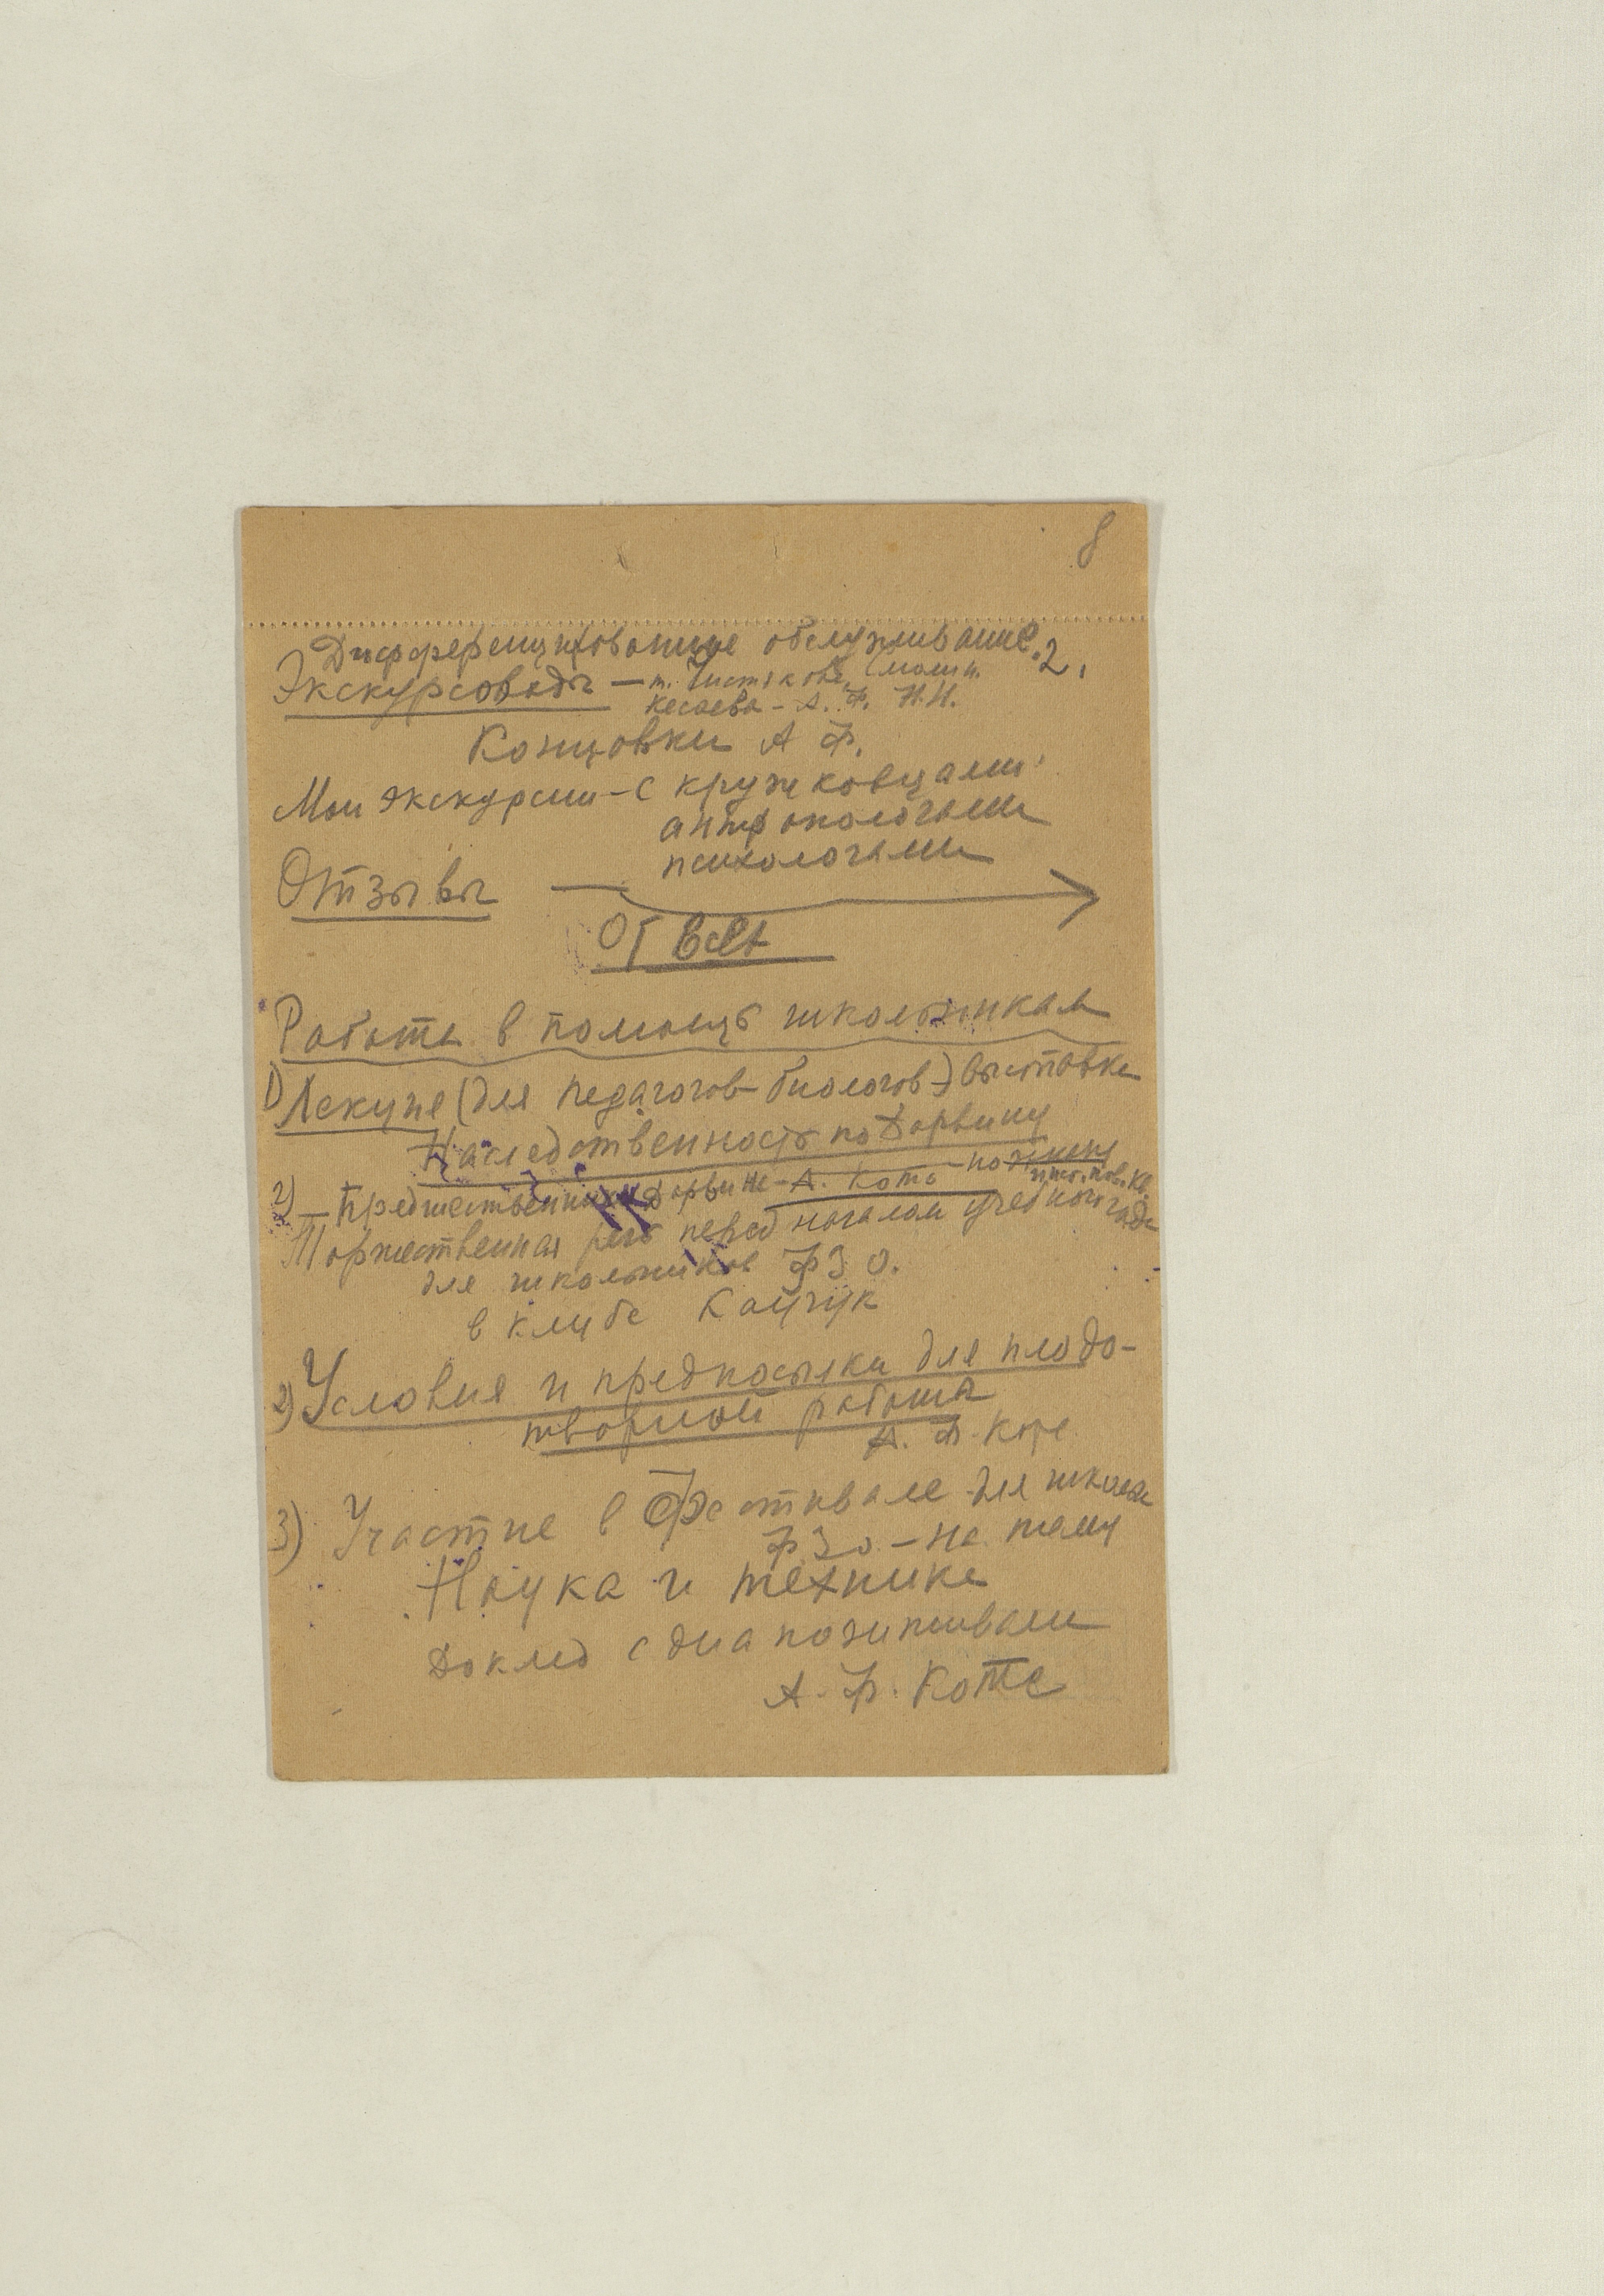 8
Дифференцированное обслуживание. 2.
Экскурсоводы — т. Чистякова,
Кесаева – А. Ф. Н.Н.
Концовки А Ф.
Мои экскурсии – с кружковцами
антропологами
психологами
Отзывы
От
Работа в помощь школьникам
1) Лекция (для педагогов-биологов) выставка
Наследственность по Дарвину
2) – Предшественники Дарвина – А. Котс –
Торжественная речь перед началом учебного года
для школьников ФЗО.
в клубе Каучук
2) Условия и предпосылки для плодо-
творной работы
А. Ф. Котс
3) Участие в фестивале для школы
ФЗО – на тему
Наука и техника
Доклад с диапозитивами
А. Ф. Котс